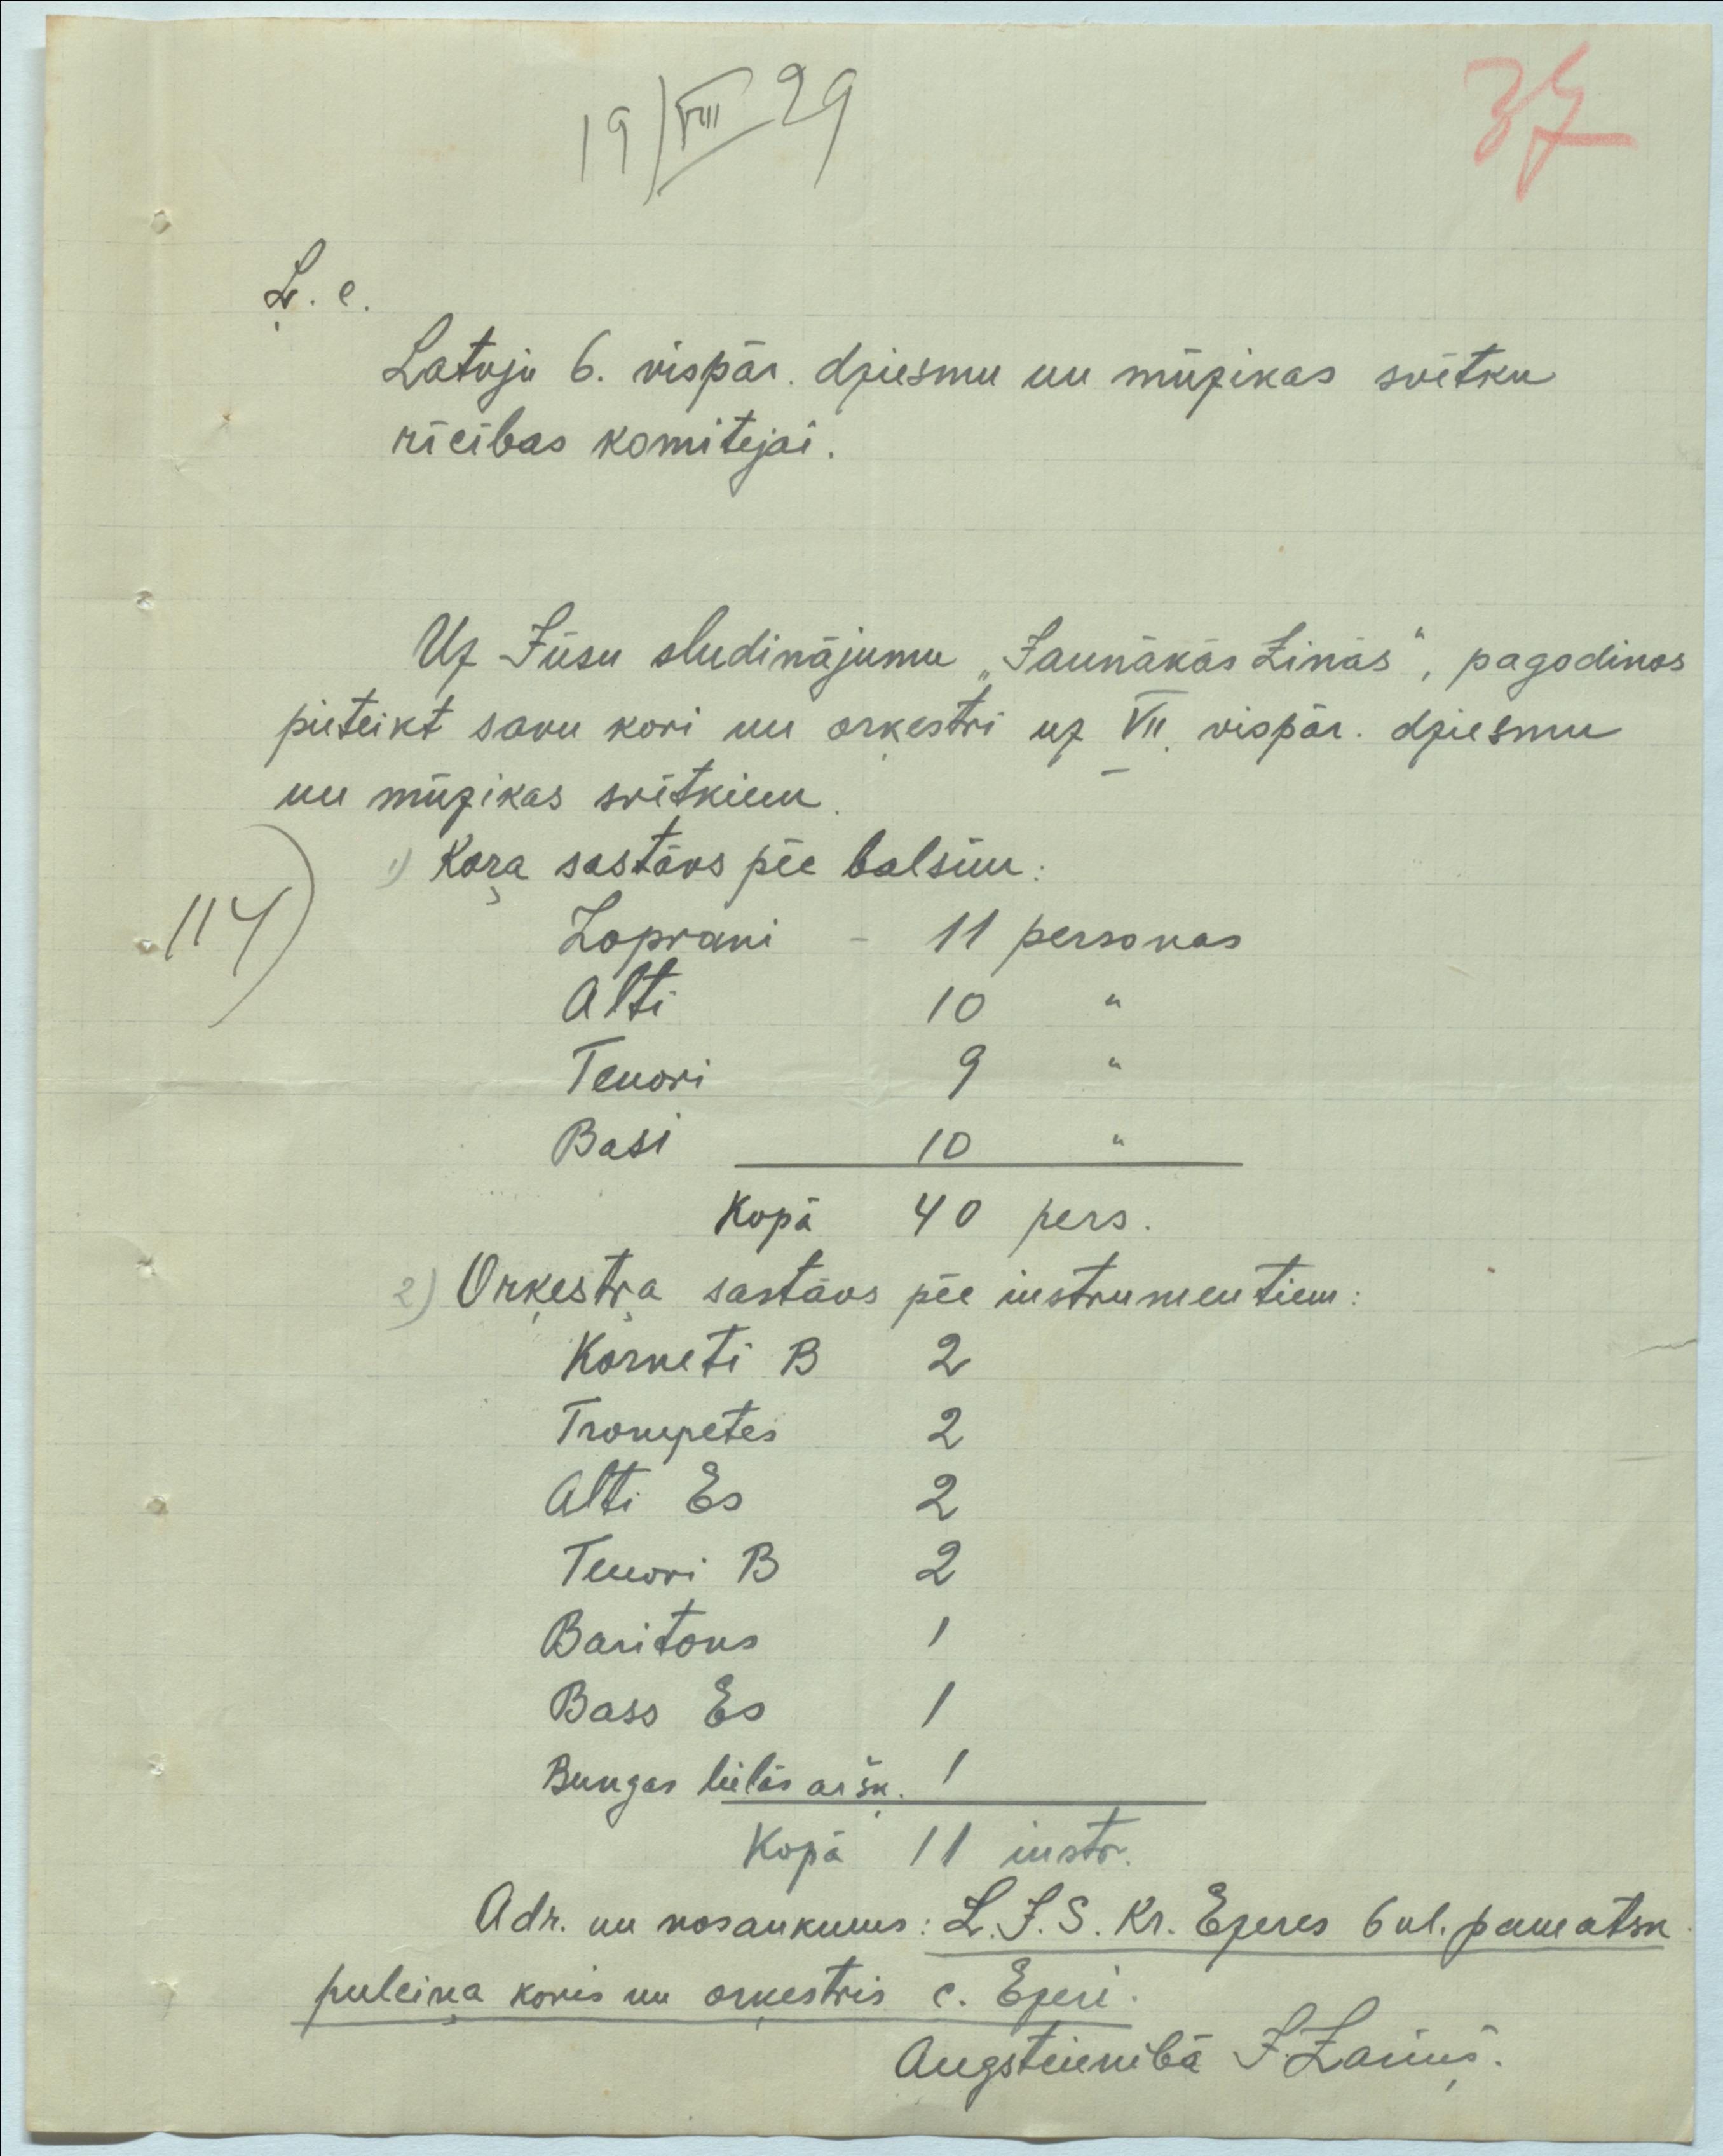 19/VIII 29
37
Ļ. c.
Latvju 6. vispār. dziesmu un mūzikas svētku
rīcības komitejai.
Uz Jūsu sludinājumu „Jaunākās Ziņās“, pagodinos
pieteikt savu kori un orķestri uz VII. vispār. dziesmu
un mūzikas svētkiem.
1) Koŗa sastāvs pēc balsīm:
114)
Soprani - 11 personas
Alti 10 "
Tenori 9 "
Basi 10 "
Kopā 40 pers.
2) Orķestŗa sastāvs pēc instrumentiem:
Korneti B 2
Trompetes 2
Alti Es 2
Tenori B 2
Baritons 1
Bass Es 1
Bungas lielās ar šķ. 1
Kopā 11 instr.
Adr. un nosaukums: L.J.S. Kr. Ezeres 6 kl. pamatsk.
pulciņa koris un orķestris c. Ezeri.
Augstcienībā J. Zariņš.